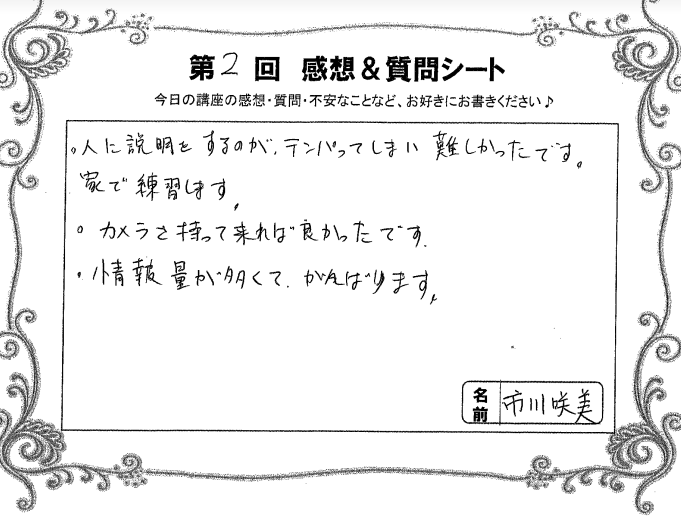 第2回 感想&質問シート
今日の講座の感想・質問・不安なことなど、お好きにお書きください♪
。人に説明をするのが、テンパってしまい 難しかったです。
家で練習します。
。カメラを持って来れば良かったです.
・情報量が多くて、がんばります。
名前 市川咲美